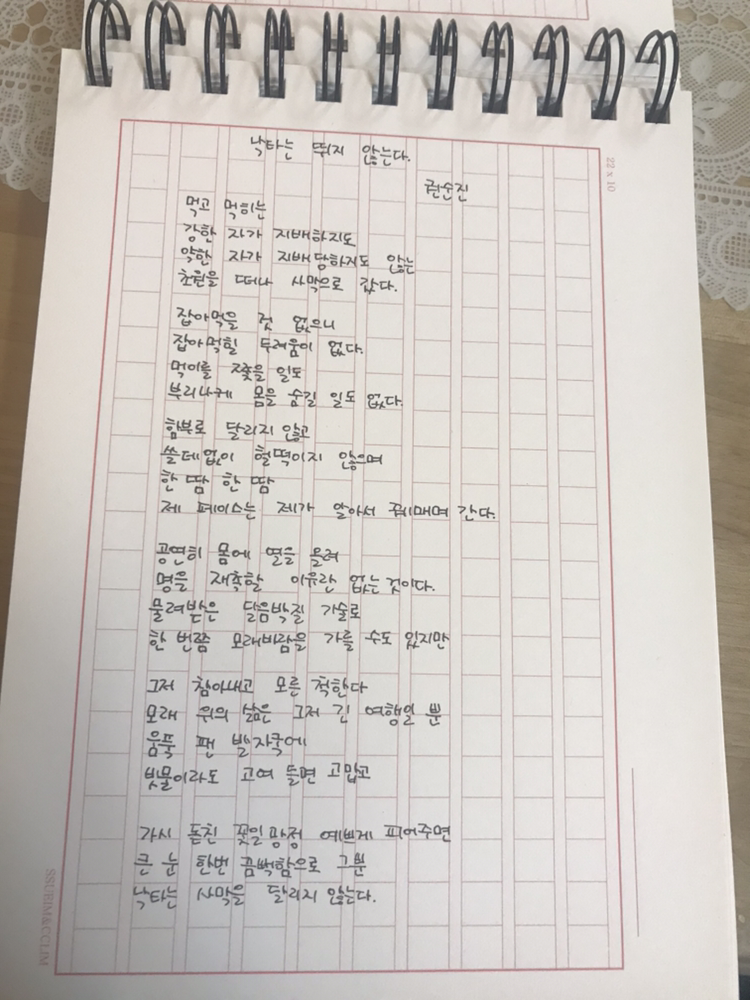 낙타는 뛰지 않는다.
권순진
먹고 먹히는
강한 자가 지배하지도
약한 자가 지배 당하지도 않는
초원을 떠나 사막으로 갔다.
잡아먹을 것 없으니
잡아먹힐 두려움이 없다.
먹이를 쫓을 일도
부리나케 몸을 숨길 일도 없다.
함부로 달리지 않고
쓸데없이 헐떡이지 않으며
한 땀 한 땀
제 페이스는 제가 알아서 꿰매며 간다.
공연히 몸에 열을 올려
명을 재촉할 이유란 없는 것이다.
물려받은 달음박질 기술로
한 번쯤 모래바람을 가를 수도 있지만
그저 참아내고 모른 척한다
모래 위의 삶은 그저 긴 여행일 뿐
움푹 팬 발자국에
빗물이라도 고여 들면 고맙고
가시 돋친 꽃일 망정 예쁘게 피어주면
큰 눈 한번 끔뻑함으로 그뿐
낙타는 사막을 달리지 않는다.
22 x 10
SSURIM&CCLIM